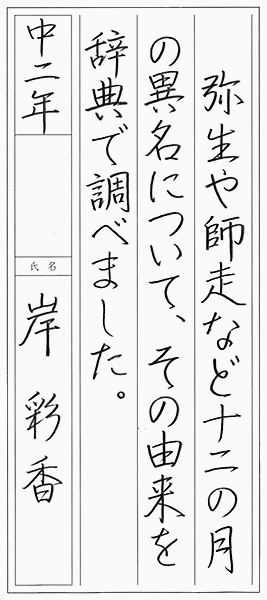 弥生や師走など十二の月
の異名について、その由来を
辞典で調べました。
中二年
氏名
岸 彩香